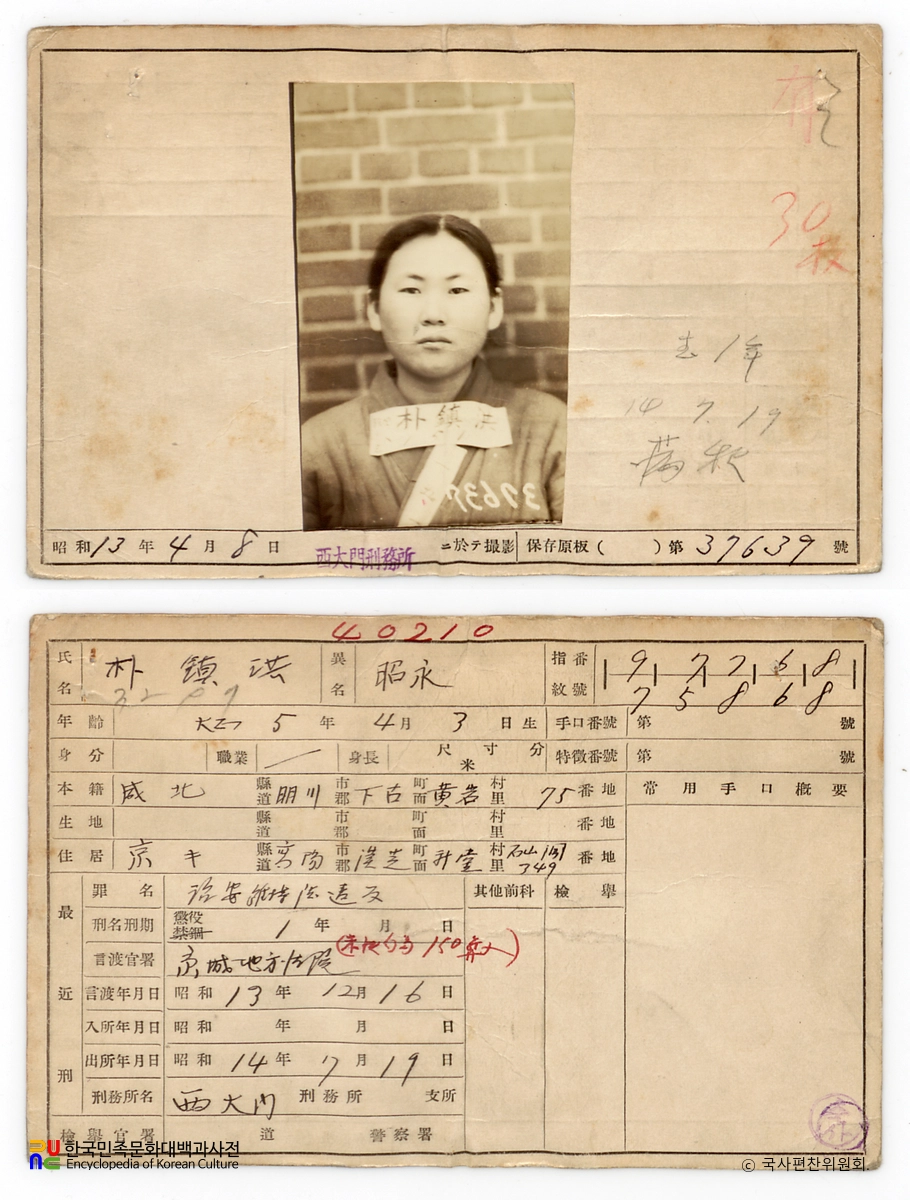 30
枚
14 7. 19
朴鎮洪
37639
昭和13年4月8日 西大門刑務所 ニ於テ撮影 保存原板( )第37639號
40210
氏名 朴鎮洪 異名 昭永 指紋番號 9 7 7 6 8
7 5 8 6 8
年齡 5年4月3日生 手口番號 第 號
身分 職業 身長 尺寸分米 特徵番號 第 號
本籍 咸北 縣道 明川 市郡 下古 町面 黃岩 村里 75番地 常用手口概要
生地 縣道 市郡 町面 村里 番地
住居 京キ 縣道 高陽 市郡 漢芝 町面 村里 349 番地
最近刑
罪名 治安維持法違反 其他前科 檢擧
刑名刑期 懲役 禁錮 1年 月 日
(未決勾留150算入)
言渡官署 京城地方法院
言渡年月日 昭和13年12月16日
入所年月日 昭和 年 月 日
出所年月日 昭和14年7月19日
刑務所名 西大門 刑務所 支所
檢擧官署 道 警察署
한국민족문화대백과사전
Encyclopedia of Korean Culture
© 국사편찬위원회